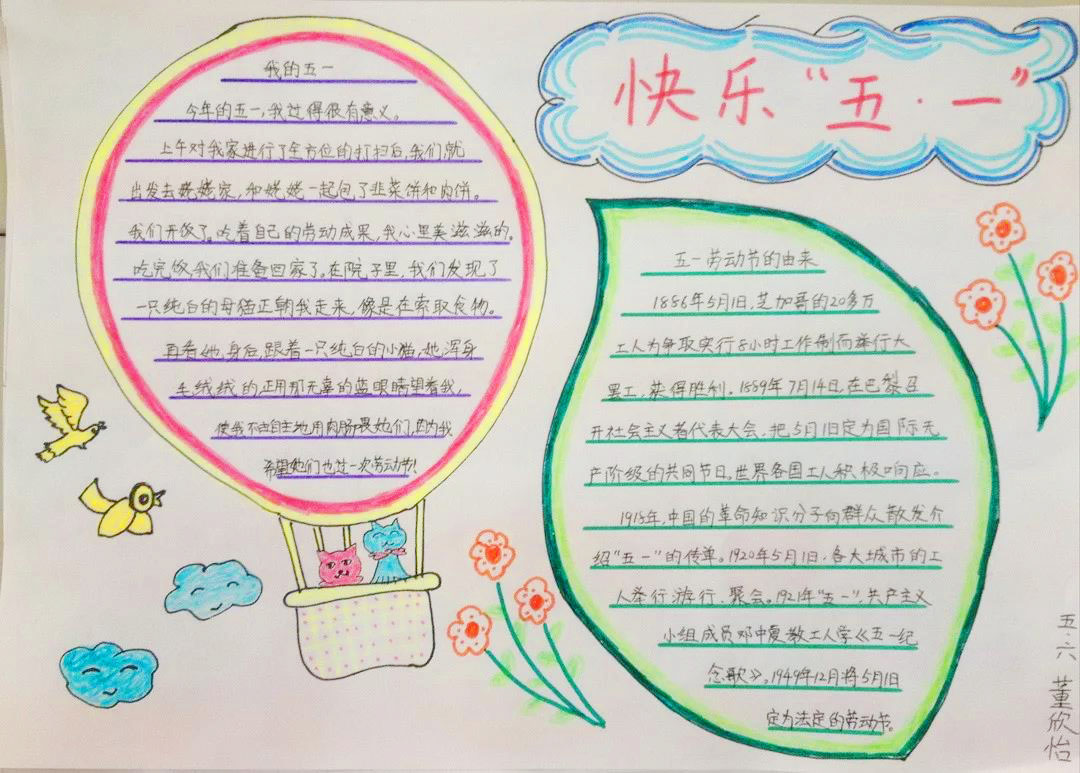 快乐“五·一”
我的五一
今年的五一,我过得很有意义。
上午对我家进行了全方位的打扫后,我们就
出发去姥姥家,和姥姥一起包了韭菜饼和肉饼。
我们开饭了。吃着自己的劳动成果,我心里美滋滋的。
吃完饭,我们准备回家了。在院子里,我们发现了
一只纯白的母猫正朝我走来,像是在索取食物。
再看她,身后跟着一只纯白的小猫,她浑身
毛绒绒的正用那无辜的蓝眼睛望着我,
使我不由自主地用肉肠喂她们,因为我
希望她们也过一次劳动节!
五一劳动节的由来
1886年5月1日,芝加哥的20多万
工人为争取实行8小时工作制而举行大
罢工,获得胜利。1889年7月14日,在巴黎召
开社会主义者代表大会,把5月1日定为国际无
产阶级的共同节日,世界各国工人积极响应。
1915年,中国的革命知识分子向群众散发介
绍“五一”的传单。1920年5月1日,各大城市的工
人举行游行、聚会。1921年“五一”,共产主义
小组成员邓中夏教工人学《五一纪
念歌》。1949年12月将5月1日
定为法定的劳动节。
五·六 董欣怡